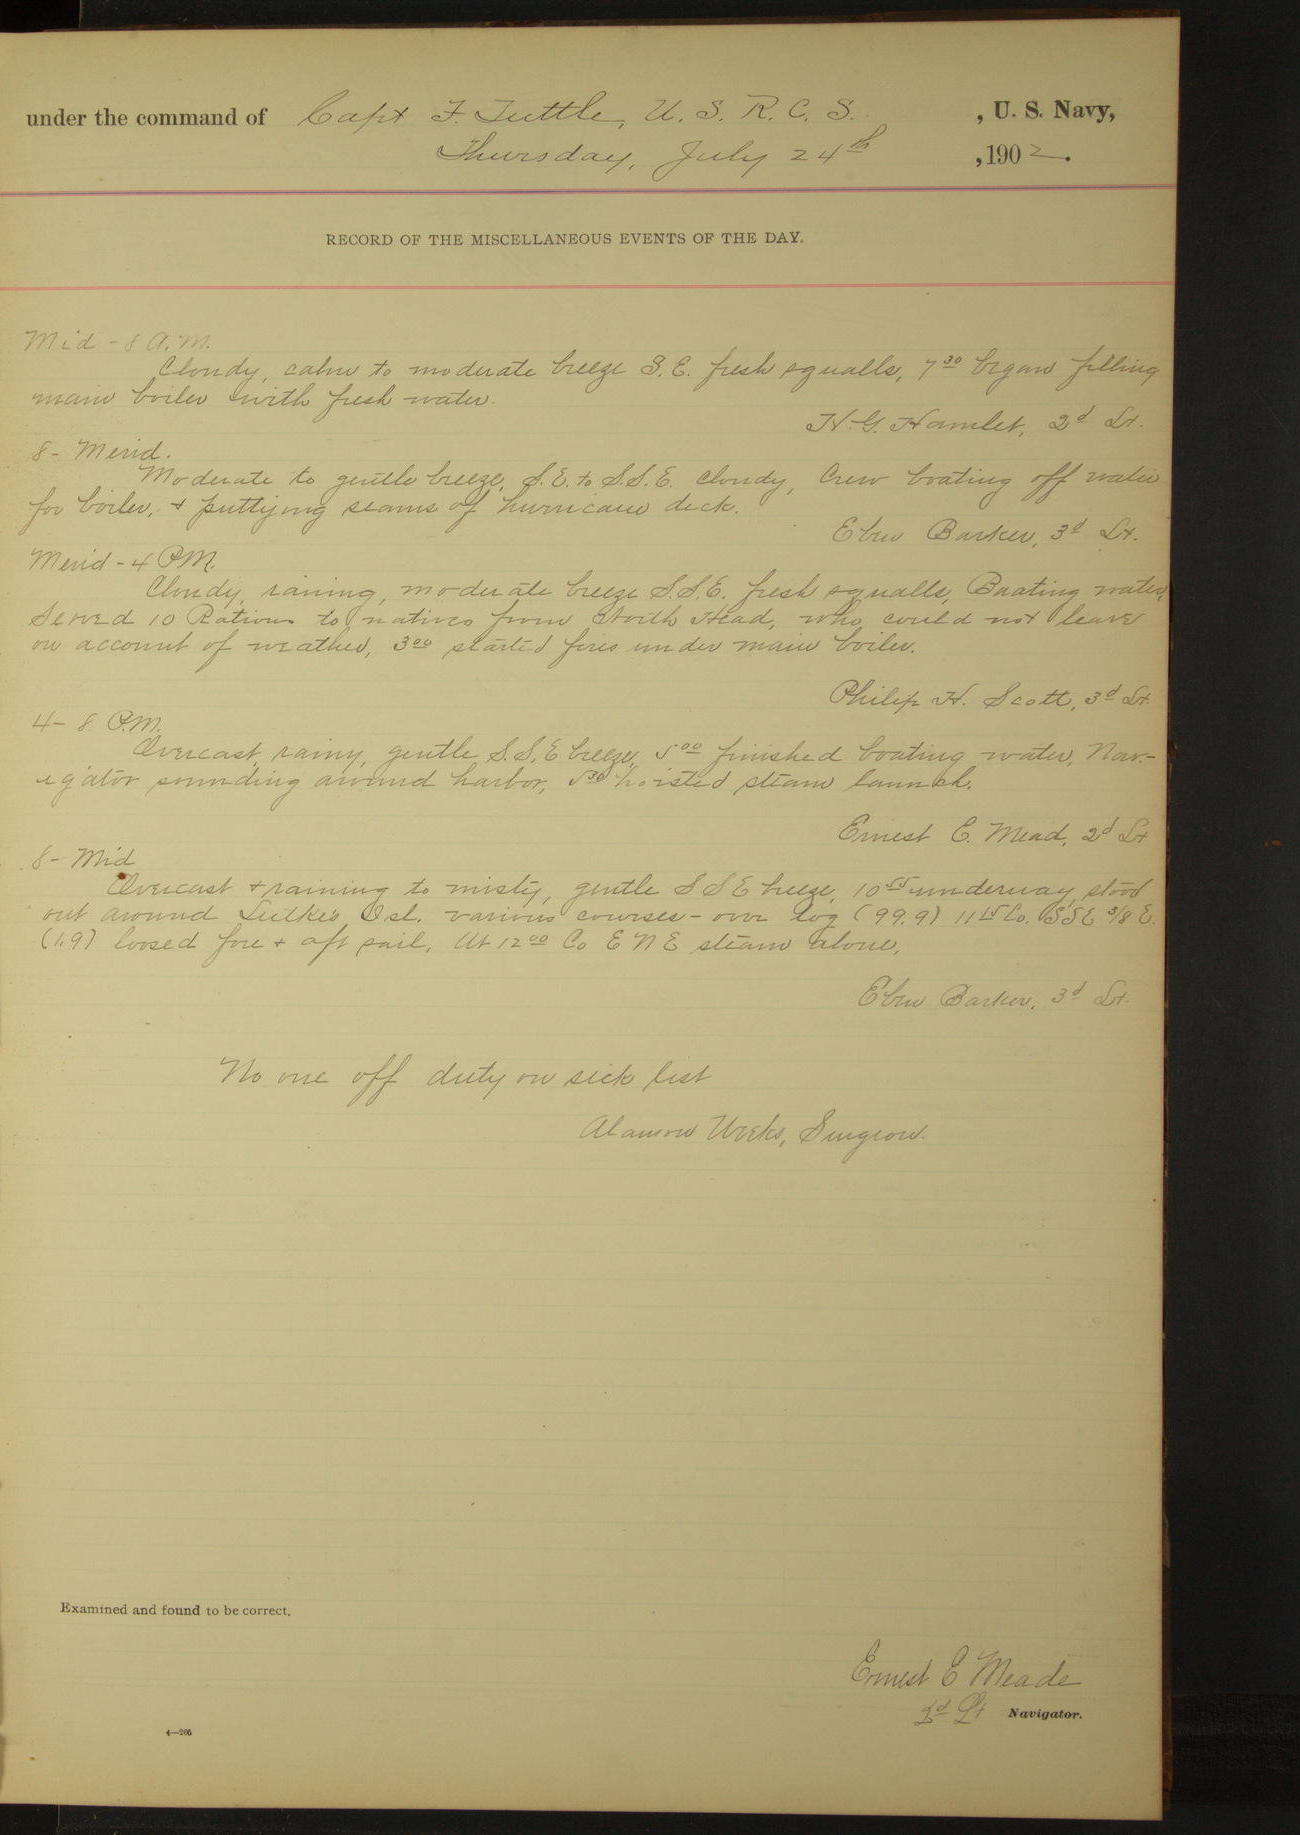 under the command of Capt F. Tuttle, U. S. R. C. S. , U. S. Navy,
Thursday, July 24th , 1902.
RECORD OF THE MISCELLANEOUS EVENTS OF THE DAY.
Mid - 8 A.M.
Cloudy, calm to moderate breeze S.E. fresh squalls, 7 30 began filling
main boiler with fresh water.
H. G. Hamlet, 2d Lt.
8 - Merid.
Moderate to gentle breeze, S.E. to S.S.E. cloudy, Crew boating off water
for boiler, + puttying seams of hurricane deck.
Eben Barker, 3d Lt.
Merid - 4 PM.
Cloudy, raining, moderate breeze S.S.E. fresh squalls, Boating water,
Served 10 Rations to natives from North Head, who could not leave
on account of weather, 3 00 started fires under main boiler.
Philip H. Scott, 3d Lt.
4 - 8 P.M.
Overcast, rainy, gentle S.S.E breeze, 5 00 finished boating water, Nav-
igator sounding around harbor, 5 30 hoisted steam launch.
Ernest E. Mead, 2d Lt
8 - Mid
Overcast + raining to misty, gentle S S E breeze, 10 55 underway, stood
out around Lutke's Isl. various courses - over log (99.9) 11 15 Co. SSE 3/8 E.
(1.9) loosed fore + aft sail, At 12 00 Co E N E steam alone,
Eben Barker, 3d Lt.
No one off duty on sick list
Alanson Weeks, Surgeon.
Examined and found to be correct.
Ernest E Meade
2d Lt Navigator.
4—266